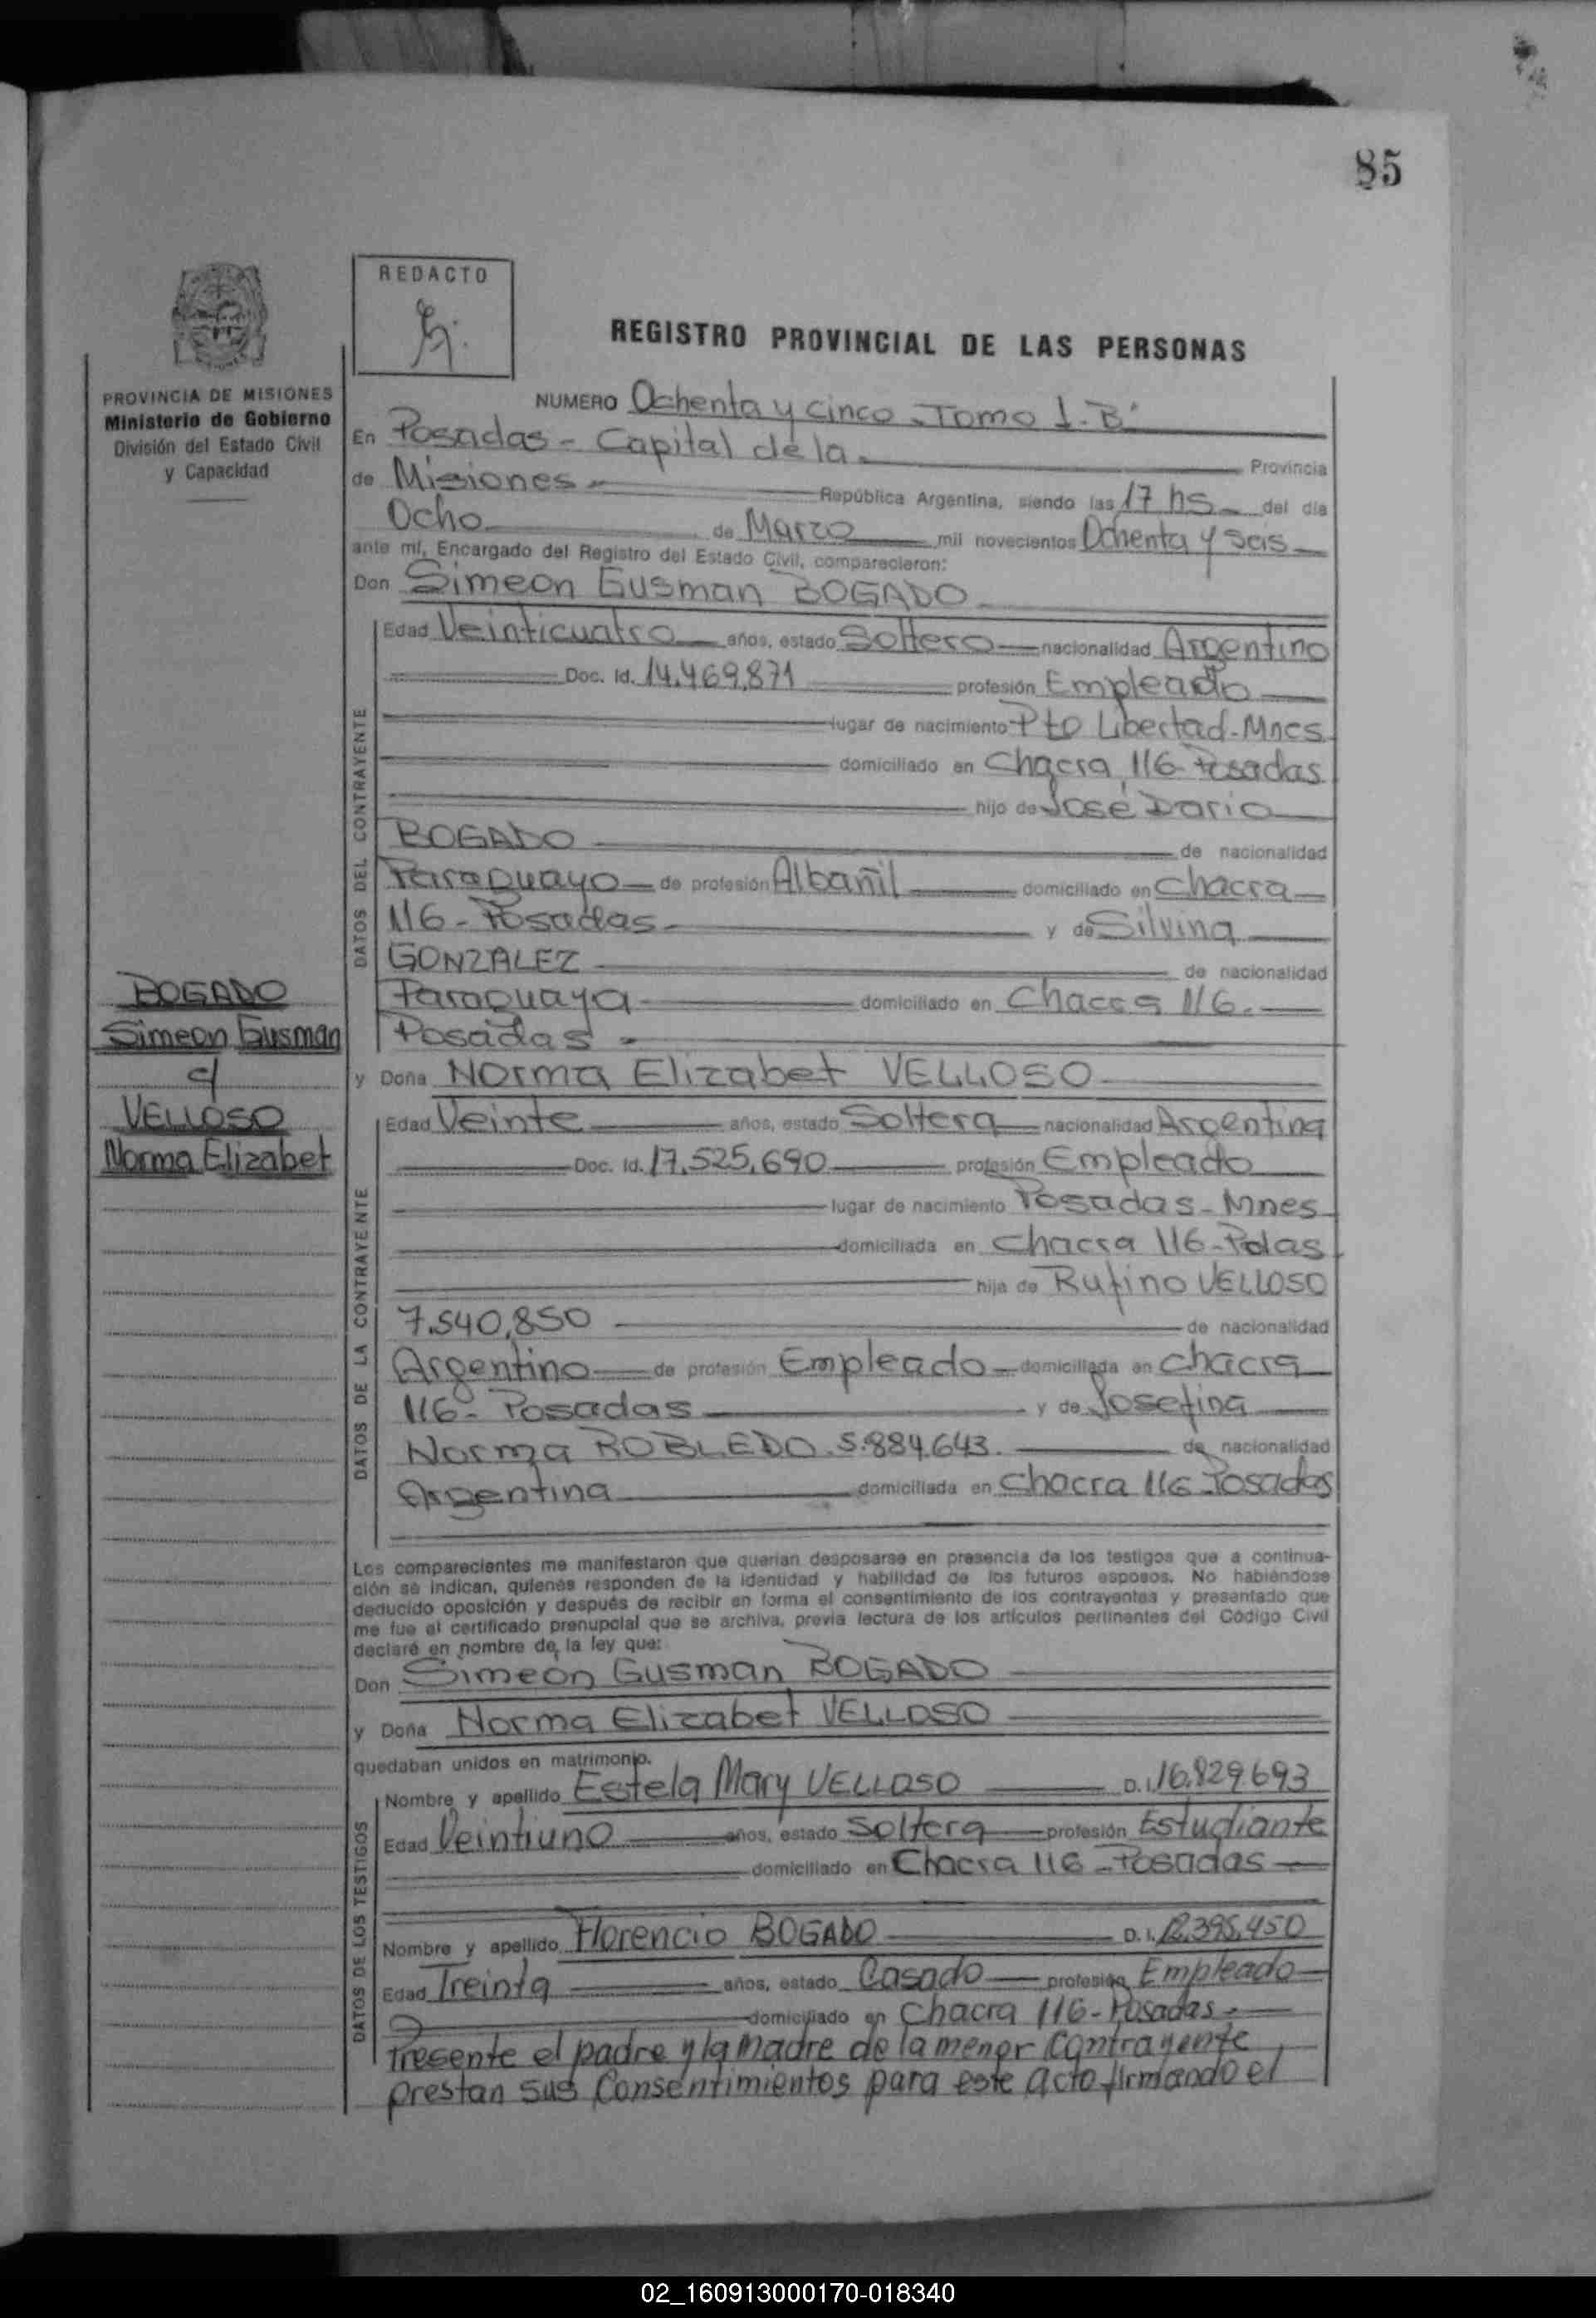 85
REDACTO
REGISTRO PROVINCIAL DE LAS PERSONAS
PROVINCIA DE MISIONES
Ministerio de Gobierno
División del Estado Civil
y Capacidad
NUMERO Ochenta y cinco - Tomo 1-B
En Posadas - Capital de la Provincia
de Misiones República Argentina, siendo las 17 hs del día
Ocho de Marzo mil novecientos Ochenta y Seis
ante mí, Encargado del Registro del Estado Civil, comparecieron:
Don Simeon Gusman BOGADO
DATOS DEL CONTRAYENTE
Edad Veinticuatro años, estado Soltero nacionalidad Argentino
Doc. Id. 14.469.871 profesión Empleado
lugar de nacimiento Pto Libertad - Mnes
domiciliado en Chacra 116 - Posadas
hijo de José Dario
BOGADO de nacionalidad
Paraguayo de profesión Albañil domiciliado en Chacra
116 - Posadas y de Silvina
GONZALEZ de nacionalidad
Paraguaya domiciliado en Chacra 116.
Posadas
BOGADO
Simeon Gusman
c/
VELLOSO
Norma Elizabet
y Doña Norma Elizabet VELLOSO
DATOS DE LA CONTRAYENTE
Edad Veinte años, estado Soltera nacionalidad Argentina
Doc. Id. 17.525.690 profesión Empleado
lugar de nacimiento Posadas - Mnes
domiciliada en Chacra 116 - Pdas
hija de Rufino VELLOSO
7.540.850 de nacionalidad
Argentino de profesión Empleado domiciliada en Chacra
116 - Posadas y de Josefina
Norma ROBLEDO. 5.884.643. de nacionalidad
Argentina domiciliada en Chacra 116 Posadas
Los comparecientes me manifestaron que querían desposarse en presencia de los testigos que a continua-
ción se indican, quienes responden de la identidad y habilidad de los futuros esposos. No habiéndose
deducido oposición y después de recibir en forma el consentimiento de los contrayentes y presentado que
me fue el certificado prenupcial que se archiva, previa lectura de los artículos pertinentes del Código Civil
declaré en nombre de la ley que:
Don Simeon Gusman BOGADO
y Doña Norma Elizabet VELLOSO
quedaban unidos en matrimonio.
DATOS DE LOS TESTIGOS
Nombre y apellido Estela Mary VELLOSO D.I. 16.829.693
Edad Veintiuno años, estado Soltera profesión Estudiante
domiciliado en Chacra 116 - Posadas
Nombre y apellido Florencio BOGADO D.I. 12.395.450
Edad Treinta años, estado Casado profesión Empleado
domiciliado en Chacra 116 - Posadas.
Presente el padre y la madre de la menor contrayente
prestan sus consentimientos para este acto firmando el
02_160913000170-018340